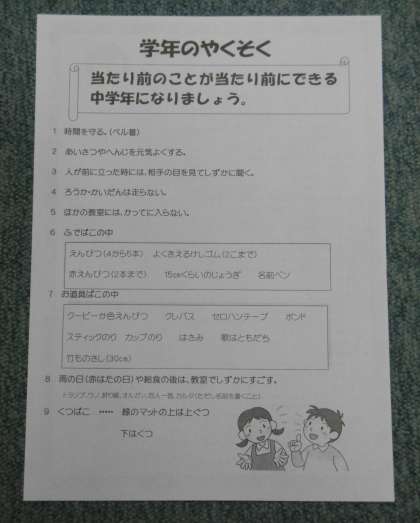 学年のやくそく
当たり前のことが当たり前にできる
中学年になりましょう。
1 時間を守る。(ベル着)
2 あいさつやへんじを元気よくする。
3 人が前に立った時には、相手の目を見てしずかに聞く。
4 ろうか・かいだんは走らない。
5 ほかの教室には、かってに入らない。
6 ふでばこの中
えんぴつ(4から5本) よくきえるけしゴム(2こまで)
赤えんぴつ(2本まで) 15㎝くらいのじょうぎ 名前ペン
7 お道具ばこの中
クーピーか色えんぴつ クレパス セロハンテープ ボンド
スティックのり カップのり はさみ 歌はともだち
竹ものさし(30㎝)
8 雨の日(赤はたの日)や給食の後は、教室でしずかにすごす。
トランプ、ウノ、折り紙、オルガン、百人一首、カルタ(ただし名前を書くこと)
9 くつばこ…‥‥‥ 緑のマットの上は上ぐつ
下はくつ